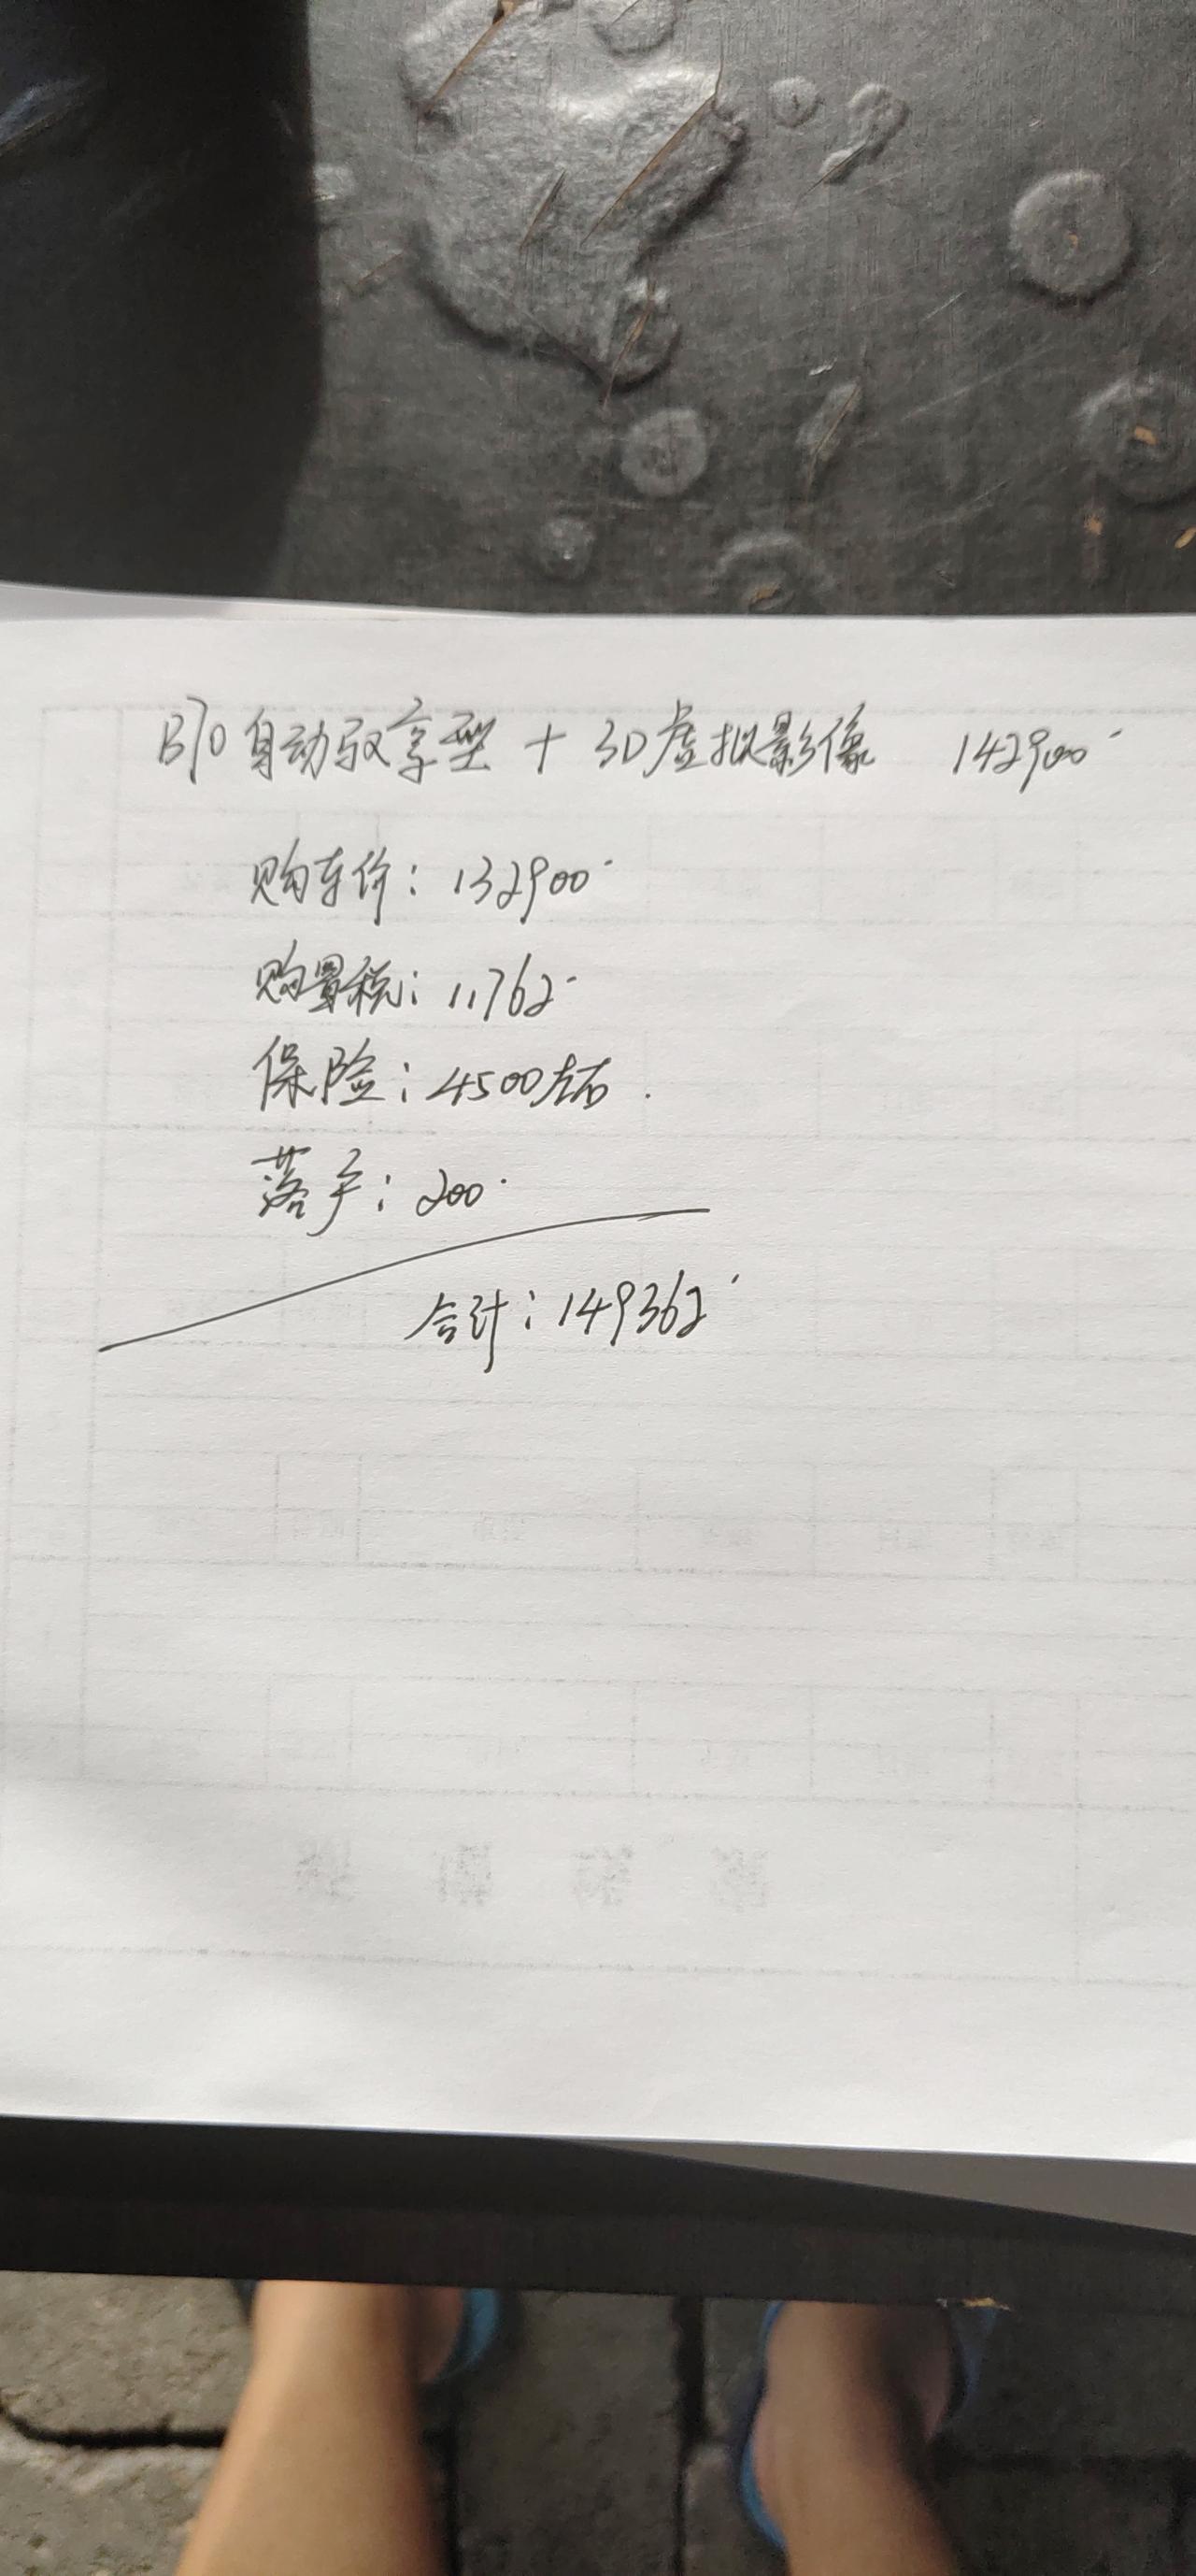 B70自动驭享型 + 3D虚拟影像 142900
购车价: 132900
购置税: 11762
保险: 4500左右.
落户: 200
合计: 149362